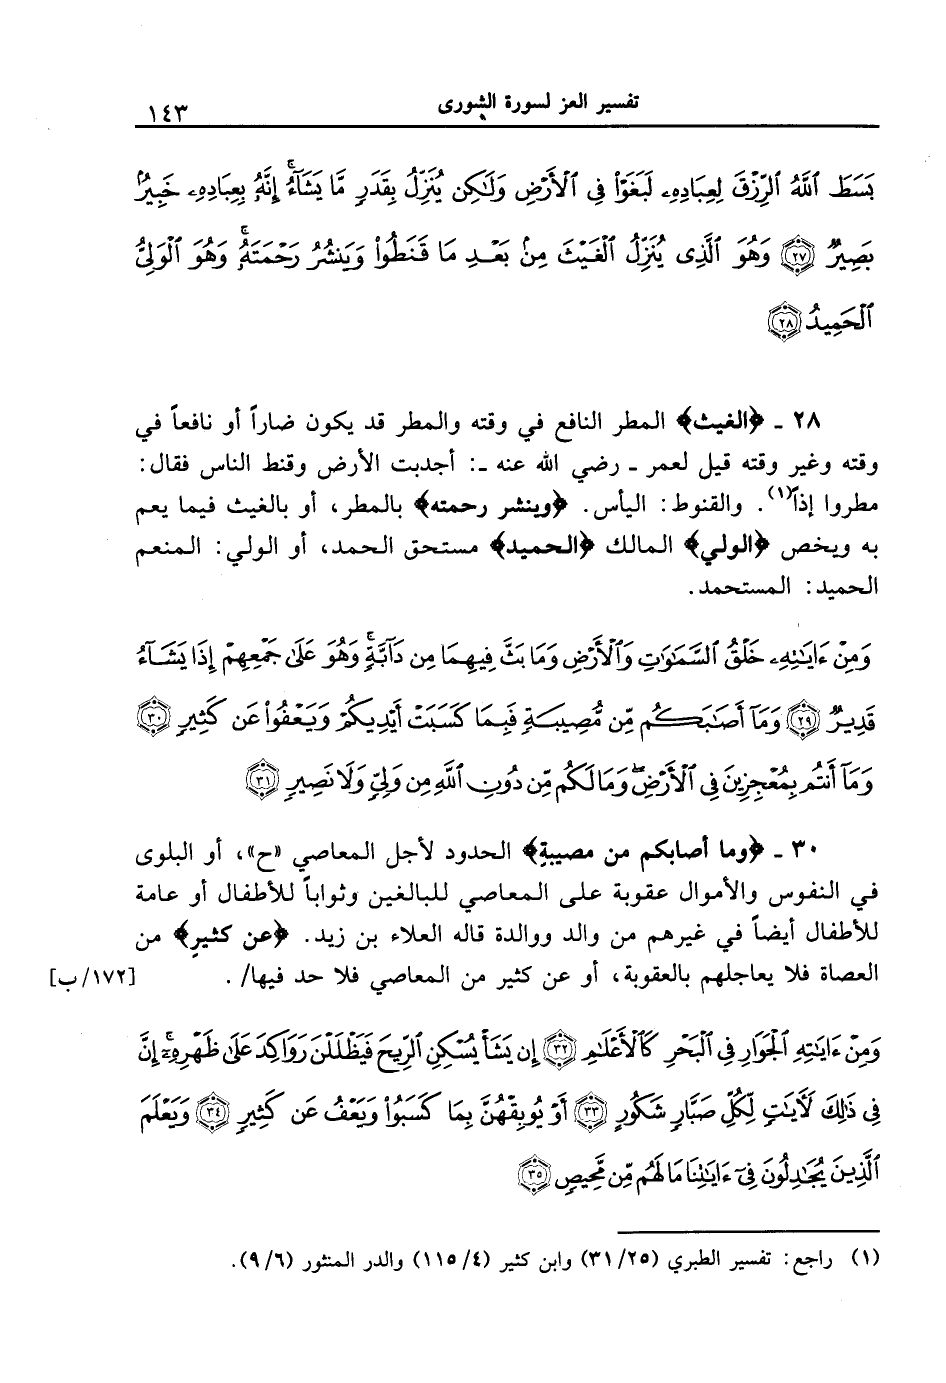 تفسير العز لسورة الشورى ١٤٣
بَسَطَ ٱللَّهُ ٱلرِّزْقَ لِعِبَادِهِۦ لَبَغَوْا۟ فِى ٱلْأَرْضِ وَلَـٰكِن يُنَزِّلُ بِقَدَرٍ مَّا يَشَآءُ ۚ إِنَّهُۥ بِعِبَادِهِۦ خَبِيرٌۢ
بَصِيرٌ ﴿٢٧﴾ وَهُوَ ٱلَّذِى يُنَزِّلُ ٱلْغَيْثَ مِنۢ بَعْدِ مَا قَنَطُوا۟ وَيَنشُرُ رَحْمَتَهُۥ ۚ وَهُوَ ٱلْوَلِىُّ
ٱلْحَمِيدُ ﴿٢٨﴾
٢٨ ـ ﴿الغيث﴾ المطر النافع في وقته والمطر قد يكون ضاراً أو نافعاً في
وقته وغير وقته قيل لعمر ـ رضي الله عنه ـ: أجدبت الأرض وقنط الناس فقال:
مطروا إذاً(١). والقنوط: اليأس. ﴿وينشر رحمته﴾ بالمطر، أو بالغيث فيما يعم
به ويخص ﴿الولي﴾ المالك ﴿الحميد﴾ مستحق الحمد، أو الولي: المنعم
الحميد: المستحمد.
وَمِنْ ءَايَـٰتِهِۦ خَلْقُ ٱلسَّمَـٰوَٰتِ وَٱلْأَرْضِ وَمَا بَثَّ فِيهِمَا مِن دَآبَّةٍ ۚ وَهُوَ عَلَىٰ جَمْعِهِمْ إِذَا يَشَآءُ
قَدِيرٌ ﴿٢٩﴾ وَمَآ أَصَـٰبَكُم مِّن مُّصِيبَةٍ فَبِمَا كَسَبَتْ أَيْدِيكُمْ وَيَعْفُوا۟ عَن كَثِيرٍ ﴿٣٠﴾
وَمَآ أَنتُم بِمُعْجِزِينَ فِى ٱلْأَرْضِ ۖ وَمَا لَكُم مِّن دُونِ ٱللَّهِ مِن وَلِىٍّ وَلَا نَصِيرٍ ﴿٣١﴾
٣٠ ـ ﴿وما أصابكم من مصيبةٍ﴾ الحدود لأجل المعاصي «ح»، أو البلوى
في النفوس والأموال عقوبة على المعاصي للبالغين وثواباً للأطفال أو عامة
للأطفال أيضاً في غيرهم من والد ووالدة قاله العلاء بن زيد. ﴿عن كثيرٍ﴾ من
العصاة فلا يعاجلهم بالعقوبة، أو عن كثير من المعاصي فلا حد فيها/. [١٧٢/ب]
وَمِنْ ءَايَـٰتِهِ ٱلْجَوَارِ فِى ٱلْبَحْرِ كَٱلْأَعْلَـٰمِ ﴿٣٢﴾ إِن يَشَأْ يُسْكِنِ ٱلرِّيحَ فَيَظْلَلْنَ رَوَاكِدَ عَلَىٰ ظَهْرِهِۦٓ ۚ إِنَّ
فِى ذَٰلِكَ لَـَٔايَـٰتٍ لِّكُلِّ صَبَّارٍ شَكُورٍ ﴿٣٣﴾ أَوْ يُوبِقْهُنَّ بِمَا كَسَبُوا۟ وَيَعْفُ عَن كَثِيرٍ ﴿٣٤﴾ وَيَعْلَمَ
ٱلَّذِينَ يُجَـٰدِلُونَ فِىٓ ءَايَـٰتِنَا مَا لَهُم مِّن مَّحِيصٍ ﴿٣٥﴾
(١) راجع: تفسير الطبري (٣١/٢٥) وابن كثير (١١٥/٤) والدر المنثور (٩/٦).